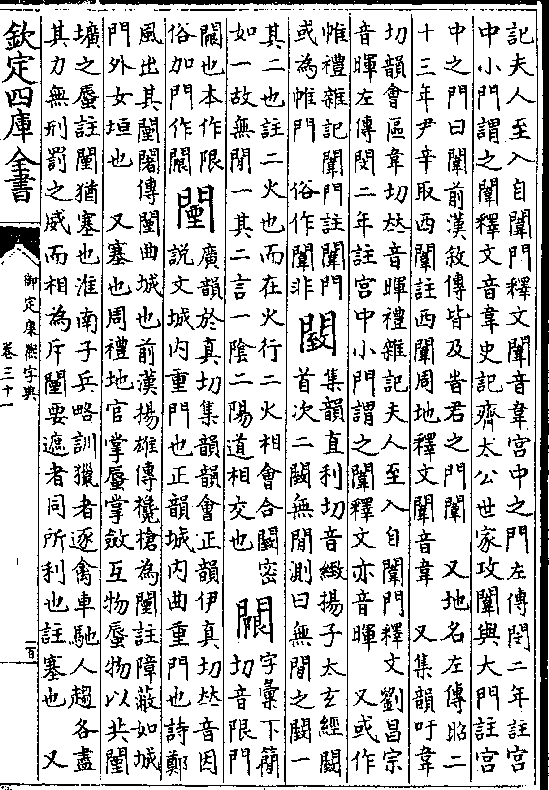 記夫人至入自闈門釋文闈音韋宮中之門左傳閔二年註宮
中小門謂之闈釋文音韋史記齊太公世家攻闈與大門註宮
中之門曰闈前漢敘傳皆及旹君之門闈　又地名左傳昭二
十三年尹辛取西闈註西闈周地釋文闈音韋　又集韻吁韋
切韻會區韋切𠀤音暉禮雜記夫人至入自闈門釋文劉昌宗
音暉左傳閔二年註宮中小門謂之闈釋文亦音暉　又或作
帷禮雜記闈門註闈門
或為帷門　俗作闈非
䦯
集韻直利切音緻揚子太玄經䦯
首次二䦯無閒測曰無閒之䦯一
其二也註二火也而在火行二火相會合䦯密
如一故無閒一其二言一陰二陽道相交也
字彙下簡
切音限門
閾也本作限
俗加門作
闉
廣韻於真切集韻韻會正韻伊真切𠀤音因
說文城內重門也正韻城內曲重門也詩鄭
風出其闉闍傳闉曲城也前漢揚雄傳欃槍為闉註障蔽如城
門外女垣也　又塞也周禮地官掌蜃掌斂互物蜃物以共闉
壙之蜃註闉猶塞也淮南子兵略訓獵者逐禽車馳人趨各盡
其力無刑罰之威而相為斥闉要遮者同所利也註塞也　又
欽定四庫全書
御定康熙字典
卷三十一